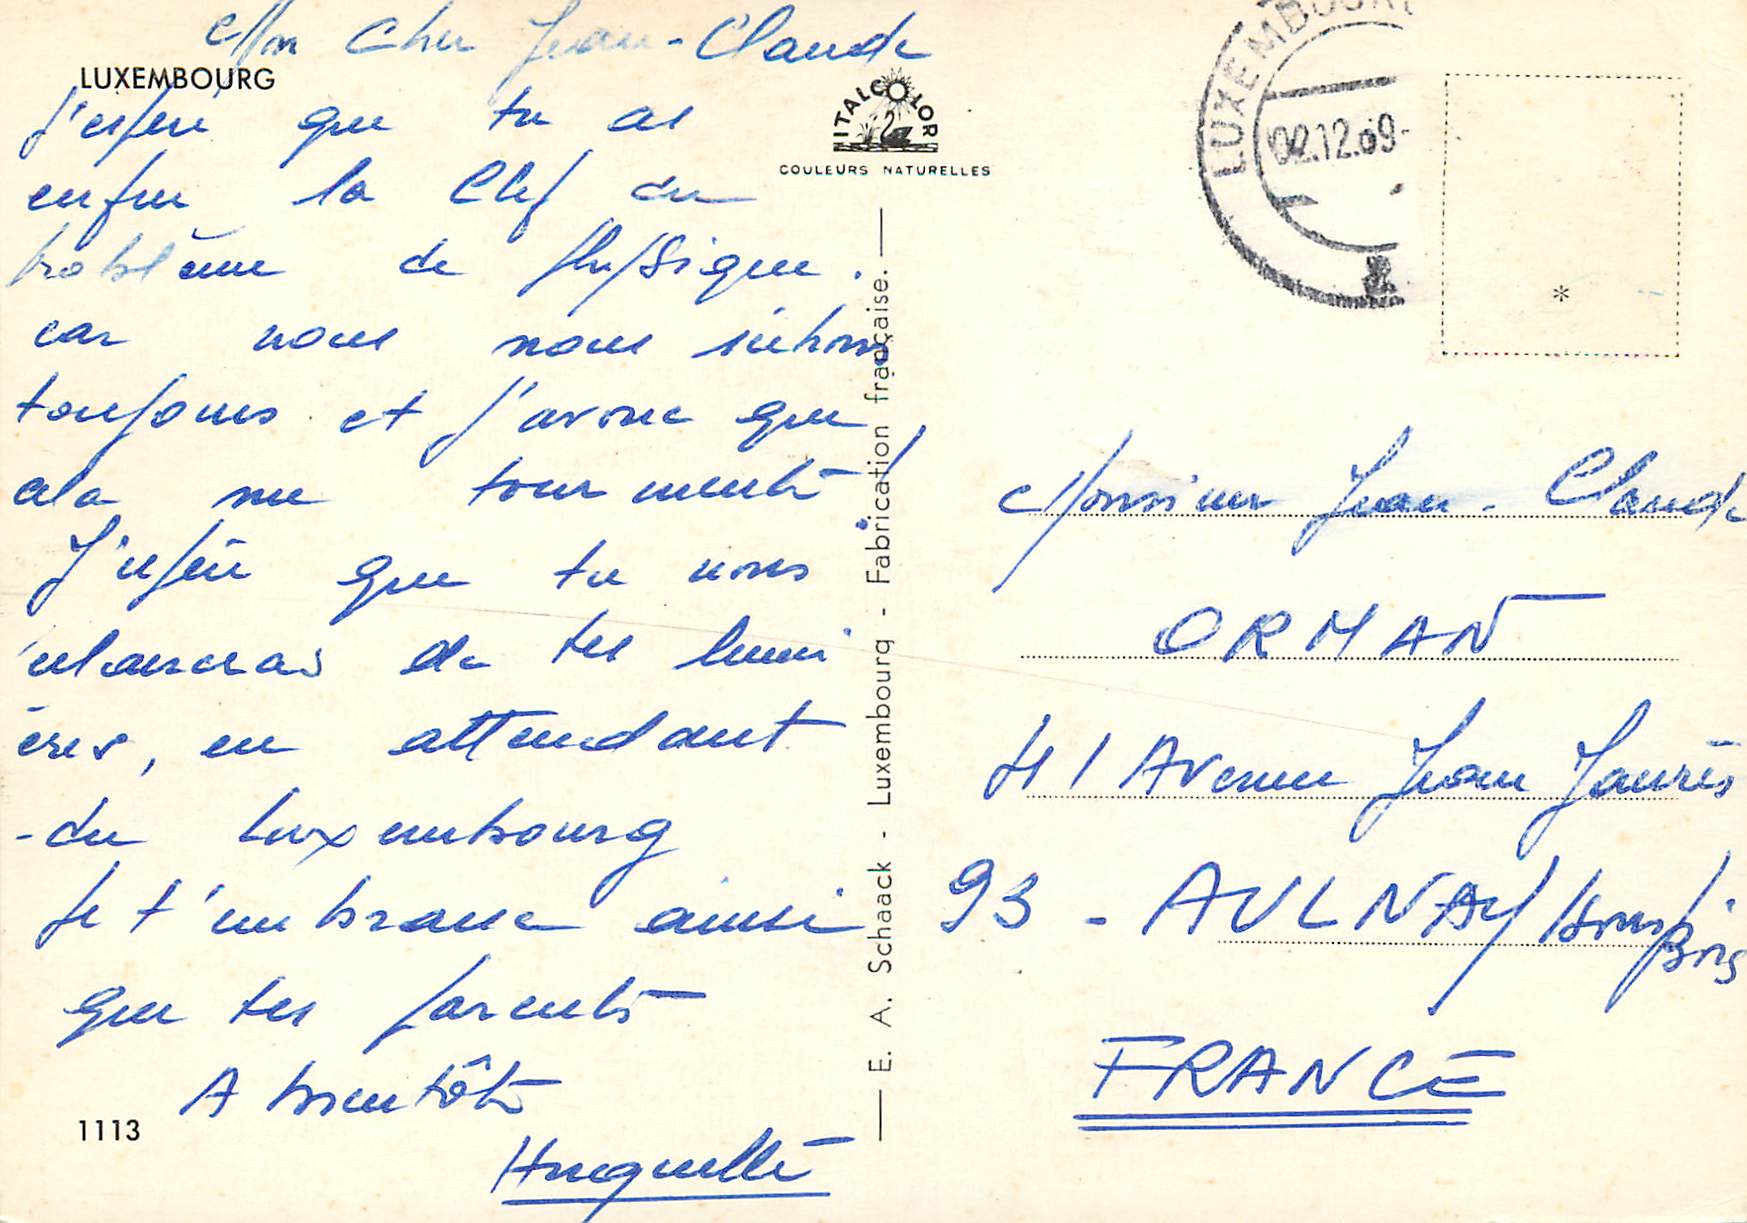 Mon Cher Jean-Claude
LUXEMBOURG
J'espère que tu as
enfin la Clef du
problème de physique.
car nous nous
toujours et j'avoue que
cela me tourmente !
J'espère que tu nous
éclaireras de tes lumi
ères, en attendant
- du Luxembourg
Je t'embrasse ainsi
que tes parents
A bientôt
Huguette
1113
ITALCOLOR
COULEURS NATURELLES
E. A. Schaack - Luxembourg - Fabrication française.
LUXEMBOURG
02.12.69-
*
Monsieur Jean-Claude
ORMAN
41 Avenue Jean Jaurès
93 - AULNAY/sous/Bois
FRANCE